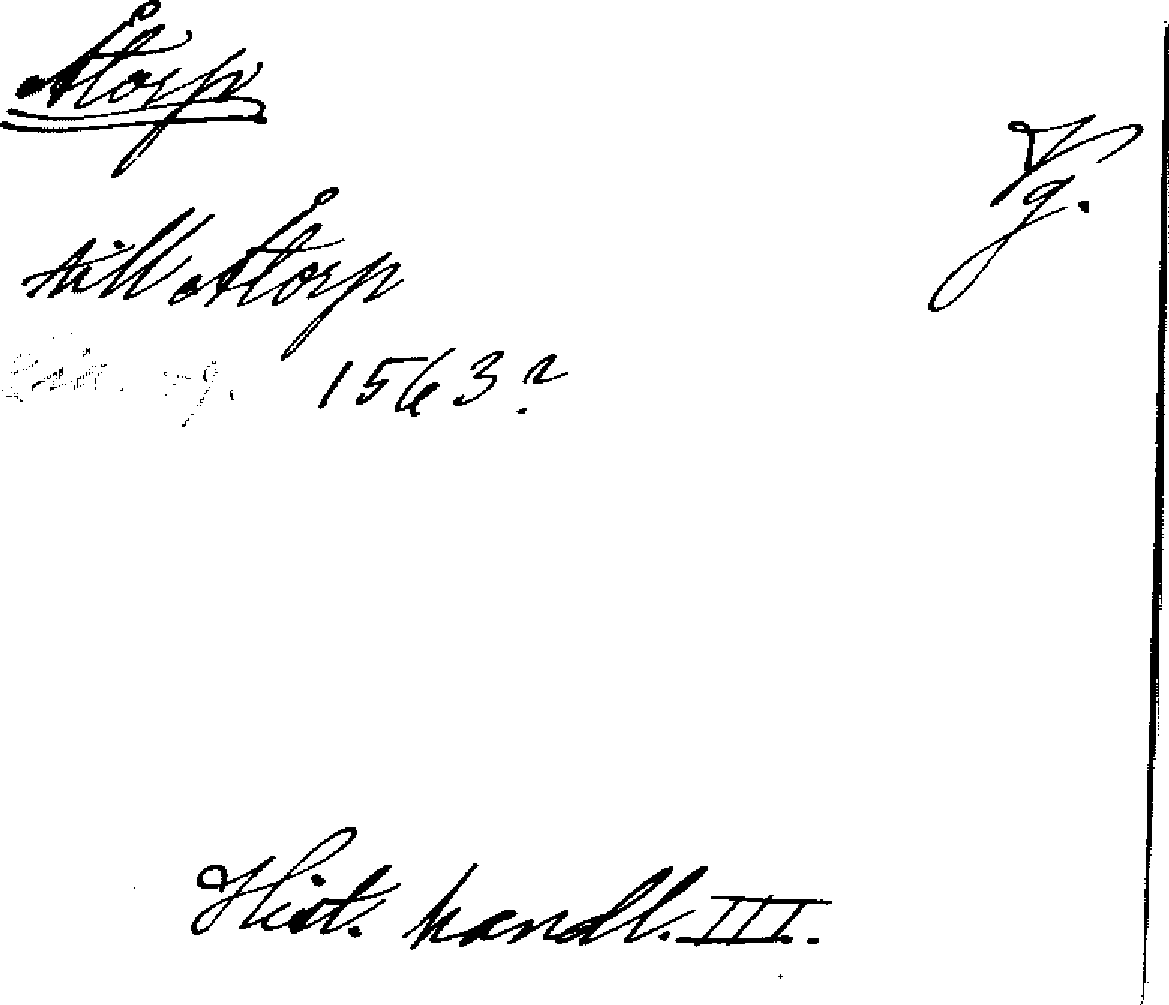 Åtorp
Vg.
till Åtorp
1563?
Hist. handl. III.